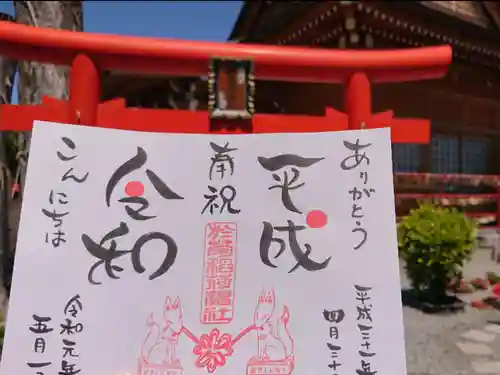 ありがとう
平成
平成三十一年
四月三十
奉祝
こんにちは
令和
令和元年
五月一